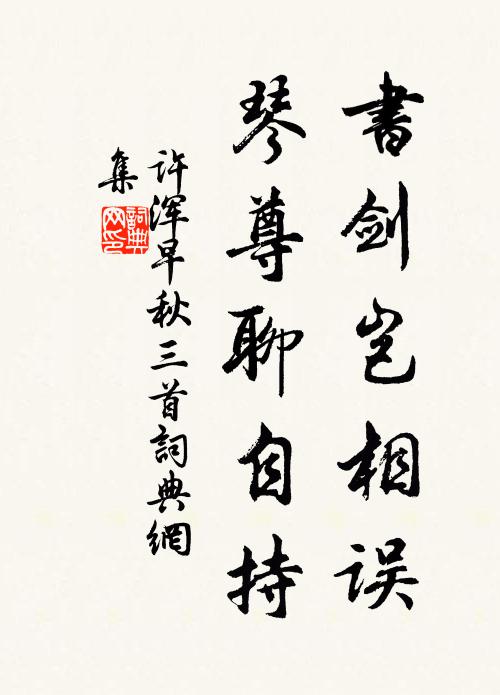 書剑岂相误
琴尊聊自持
许浑早秋三首詞典網
集
詞典
网印